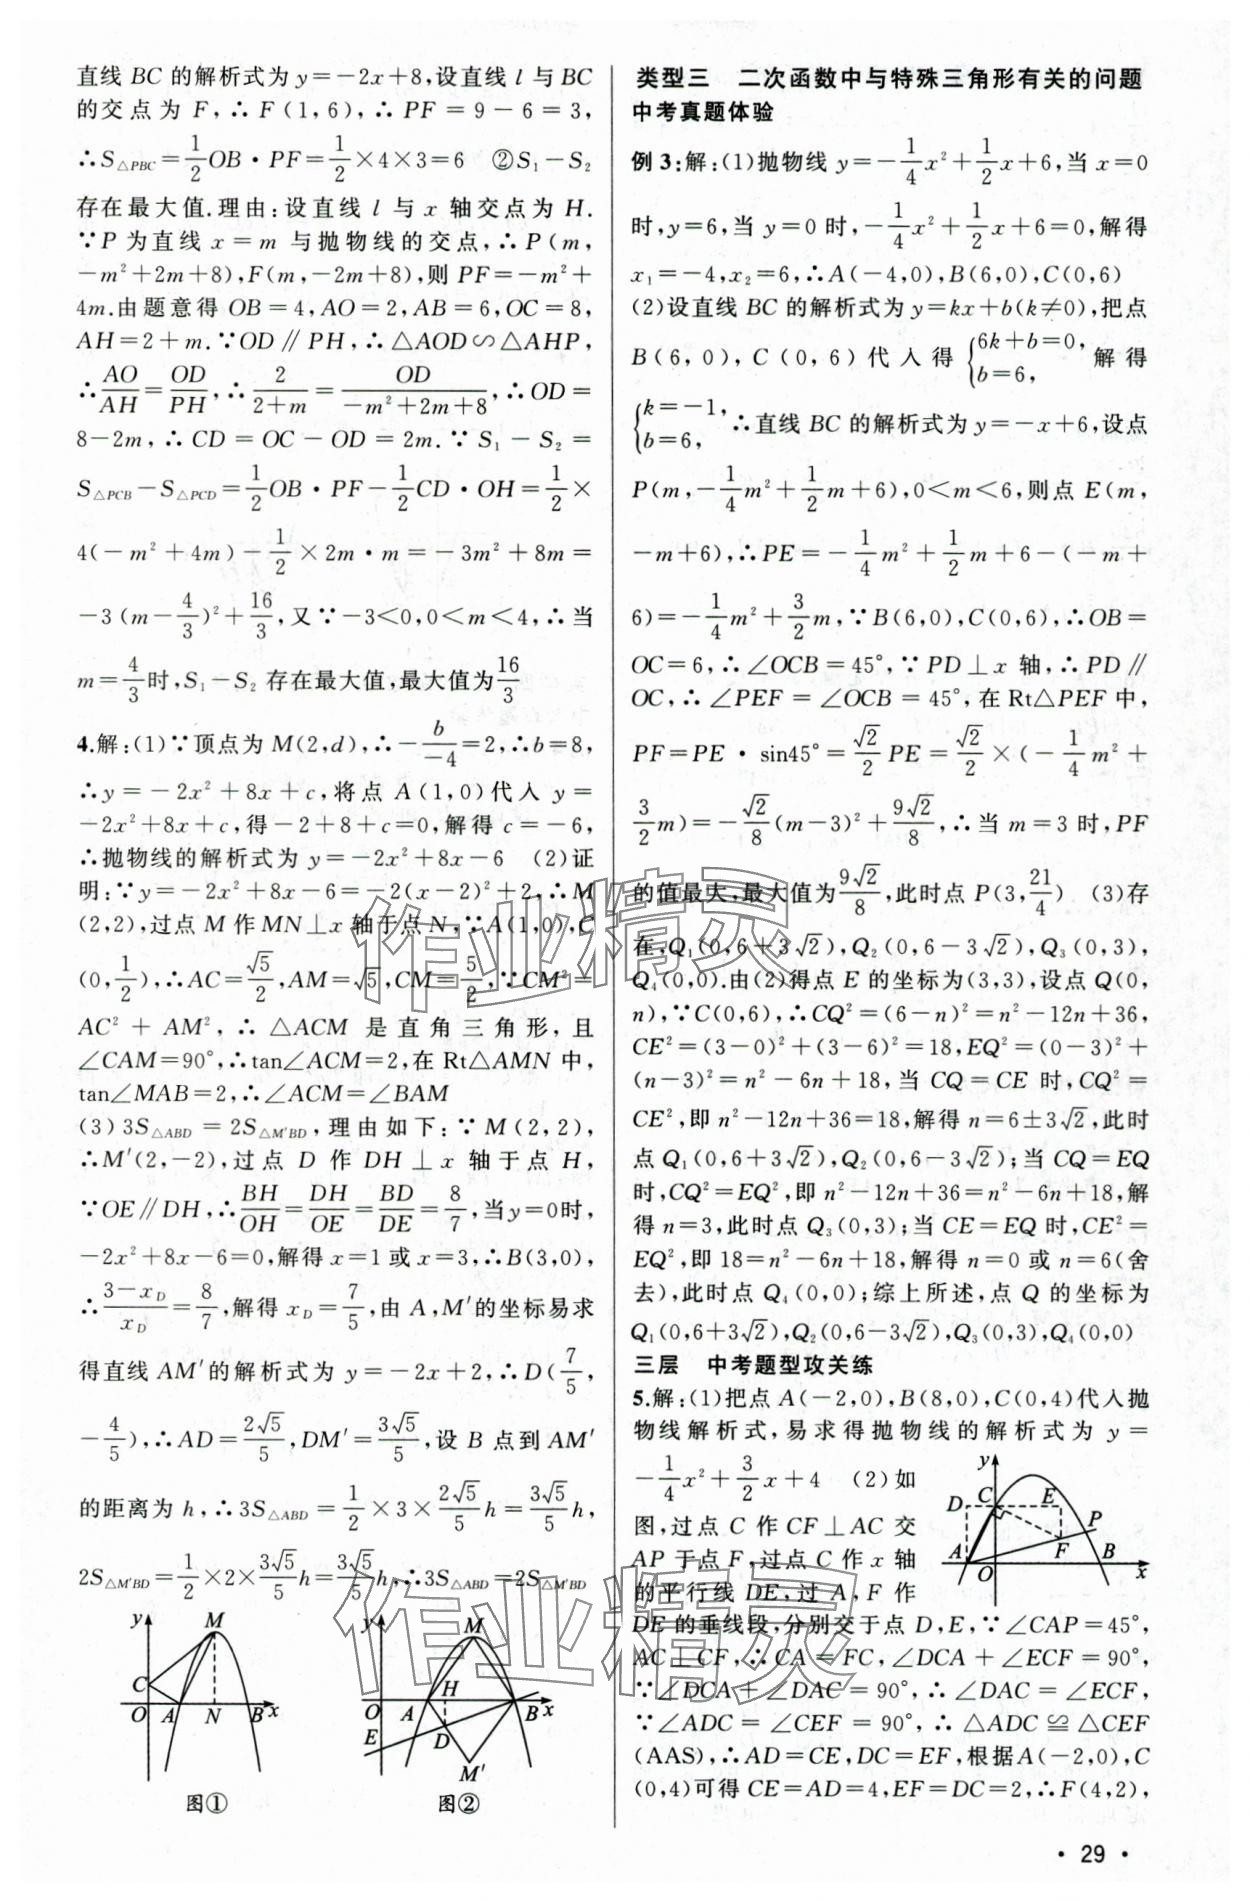 直线 BC 的解析式为 y=-2x+8,设直线 l 与 BC
的交点为 F,∴F(1,6),∴PF=9-6=3,
∴S△PBC=1/2OB·PF=1/2×4×3=6 ②S₁-S₂
存在最大值.理由:设直线 l 与 x 轴交点为 H.
∵P 为直线 x=m 与抛物线的交点,∴P(m,
-m²+2m+8),F(m,-2m+8),则 PF=-m²+
4m.由题意得 OB=4,AO=2,AB=6,OC=8,
AH=2+m.∵OD∥PH,∴△AOD∽△AHP,
∴AO/AH=OD/PH,∴2/(2+m)=OD/(-m²+2m+8),∴OD=
8-2m,∴CD=OC-OD=2m.∵S₁-S₂=
S△PCB-S△PCD=1/2OB·PF-1/2CD·OH=1/2×
4(-m²+4m)-1/2×2m·m=-3m²+8m=
-3(m-4/3)²+16/3,又∵-3<0,0<m<4,∴当
m=4/3时,S₁-S₂存在最大值,最大值为16/3
4.解:(1)∵顶点为 M(2,d),∴-b/-4=2,∴b=8,
∴y=-2x²+8x+c,将点 A(1,0)代入 y=
-2x²+8x+c,得-2+8+c=0,解得 c=-6,
∴抛物线的解析式为 y=-2x²+8x-6 (2)证
明:∵y=-2x²+8x-6=-2(x-2)²+2,∴M
(2,2),过点 M 作 MN⊥x 轴于点 N,∵A(1,0),C
(0,1/2),∴AC=√5/2,AM=√5,CM=5/2,∵CM²=
AC²+AM²,∴△ACM 是直角三角形,且
∠CAM=90°,∴tan∠ACM=2,在 Rt△AMN 中,
tan∠MAB=2,∴∠ACM=∠BAM
(3)3S△ABD=2S△M'BD,理由如下:∵M(2,2),
∴M'(2,-2),过点 D 作 DH⊥x 轴于点 H,
∵OE∥DH,∴BH/OH=DH/OE=BD/DE=8/7,当y=0时,
-2x²+8x-6=0,解得 x=1或 x=3,∴B(3,0),
∴(3-x_D)/x_D=8/7,解得 x_D=7/5,由 A,M'的坐标易求
得直线 AM'的解析式为 y=-2x+2,∴D(7/5,
-4/5),∴AD=2√5/5,DM'=3√5/5,设 B 点到 AM'
的距离为 h,∴3S△ABD=1/2×3×2√5/5h=3√5/5h,
2S△M'BD=1/2×2×3√5/5h=3√5/5h,∴3S△ABD=2S△M'BD
y M C O A N B x
图①
y M O H A B x E D M'
图②
类型三 二次函数中与特殊三角形有关的问题
中考真题体验
例 3:解:(1)抛物线 y=-1/4x²+1/2x+6,当 x=0
时,y=6,当 y=0 时,-1/4x²+1/2x+6=0,解得
x₁=-4,x₂=6,∴A(-4,0),B(6,0),C(0,6)
(2)设直线 BC 的解析式为 y=kx+b(k≠0),把点
B(6,0),C(0,6)代入得{6k+b=0, b=6, 解得
{k=-1, b=6, ∴直线 BC 的解析式为 y=-x+6,设点
P(m,-1/4m²+1/2m+6),0<m<6,则点 E(m,
-m+6),∴PE=-1/4m²+1/2m+6-(-m+
6)=-1/4m²+3/2m,∵B(6,0),C(0,6),∴OB=
OC=6,∴∠OCB=45°,∵PD⊥x 轴,∴PD∥
OC,∴∠PEF=∠OCB=45°,在Rt△PEF中,
PF=PE·sin45°=√2/2PE=√2/2×(-1/4m²+
3/2m)=-√2/8(m-3)²+9√2/8,∴当 m=3 时,PF
的值最大,最大值为9√2/8,此时点 P(3,21/4) (3)存
在,Q₁(0,6+3√2),Q₂(0,6-3√2),Q₃(0,3),
Q₄(0,0).由(2)得点 E 的坐标为(3,3),设点 Q(0,
n),∵C(0,6),∴CQ²=(6-n)²=n²-12n+36,
CE²=(3-0)²+(3-6)²=18,EQ²=(0-3)²+
(n-3)²=n²-6n+18,当 CQ=CE 时,CQ²=
CE²,即 n²-12n+36=18,解得 n=6±3√2,此时
点 Q₁(0,6+3√2),Q₂(0,6-3√2);当 CQ=EQ
时,CQ²=EQ²,即 n²-12n+36=n²-6n+18,解
得 n=3,此时点 Q₃(0,3);当 CE=EQ 时,CE²=
EQ²,即 18=n²-6n+18,解得 n=0 或 n=6(舍
去),此时点 Q₄(0,0);综上所述,点 Q 的坐标为
Q₁(0,6+3√2),Q₂(0,6-3√2),Q₃(0,3),Q₄(0,0)
三层 中考题型攻关练
5.解:(1)把点 A(-2,0),B(8,0),C(0,4)代入抛
物线解析式,易求得抛物线的解析式为 y=
-1/4x²+3/2x+4 (2)如
图,过点 C 作 CF⊥AC 交
AP 于点 F,过点 C 作 x 轴
的平行线 DE,过 A,F 作
y D C E P F A O B x
DE 的垂线段,分别交于点 D,E,∵∠CAP=45°,
AC⊥CF,∴CA=FC,∠DCA+∠ECF=90°,
∵∠DCA+∠DAC=90°,∴∠DAC=∠ECF,
∵∠ADC=∠CEF=90°,∴△ADC≌△CEF
(AAS),∴AD=CE,DC=EF,根据A(-2,0),C
(0,4)可得 CE=AD=4,EF=DC=2,∴F(4,2),
·29·
作业精灵
作业精灵